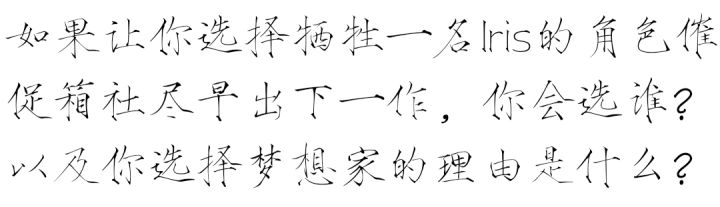 如果让你选择牺牲一名Iris的角色催
促箱社尽早出下一作，你会选谁?
以及你选择梦想家的理由是什么?